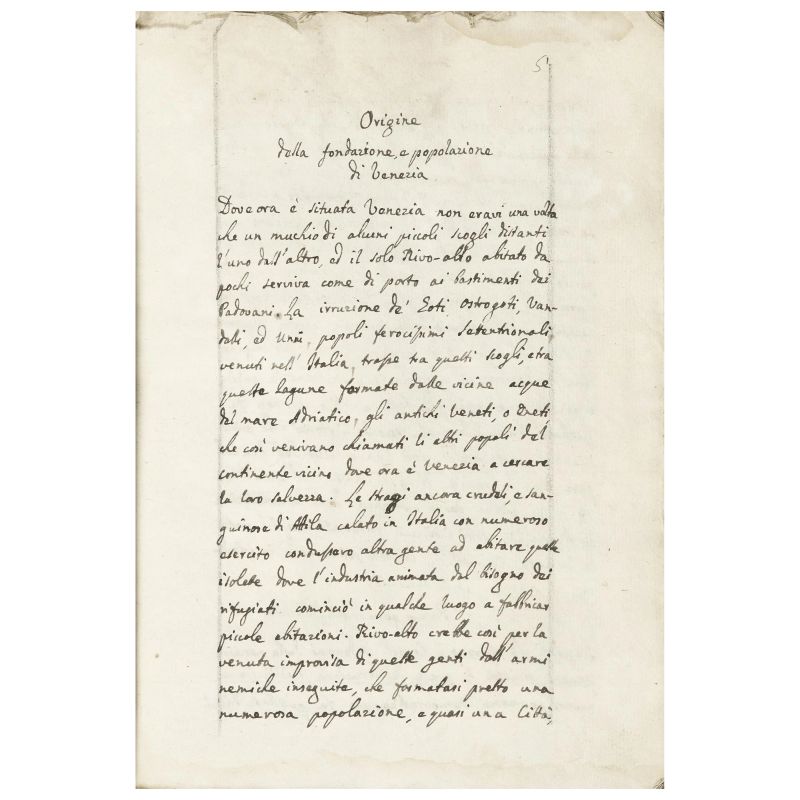 5
Origine
della fondazione, e popolazione
di Venezia
Dove ora è situata Venezia non eravi una volta
che un muchio di alcuni piccoli scogli distanti
l'uno dall'altro, ed il solo Rivo-alto abitato da
pochi serviva come di porto ai bastimenti dei
Padovani. La irruzione de' Goti, Ostrogoti, Van-
dali, ed Unni, popoli ferocissimi Setentrionali
venuti nell'Italia, trasse tra questi scogli, e tra
queste lagune formate dalle vicine acque
del mare Adriatico, gli antichi Veneti, o Eneti,
che così venivano chiamati li altri popoli del
continente vicino dove ora è Venezia a cercare
la loro salvezza. Le stragi ancora crudeli, e san-
guinose di Attila calato in Italia con numeroso
esercito condussero altra gente ad abitare queste
isolete dove l'industria animata dal bisogno dei
rifugiati cominciò in qualche luogo a fabbricar
piccole abitazioni. Rivo-alto crebbe così per la
venuta improvisa di queste genti dall'armi
nemiche inseguite, che formatasi presto una
numerosa popolazione, e quasi una Città,